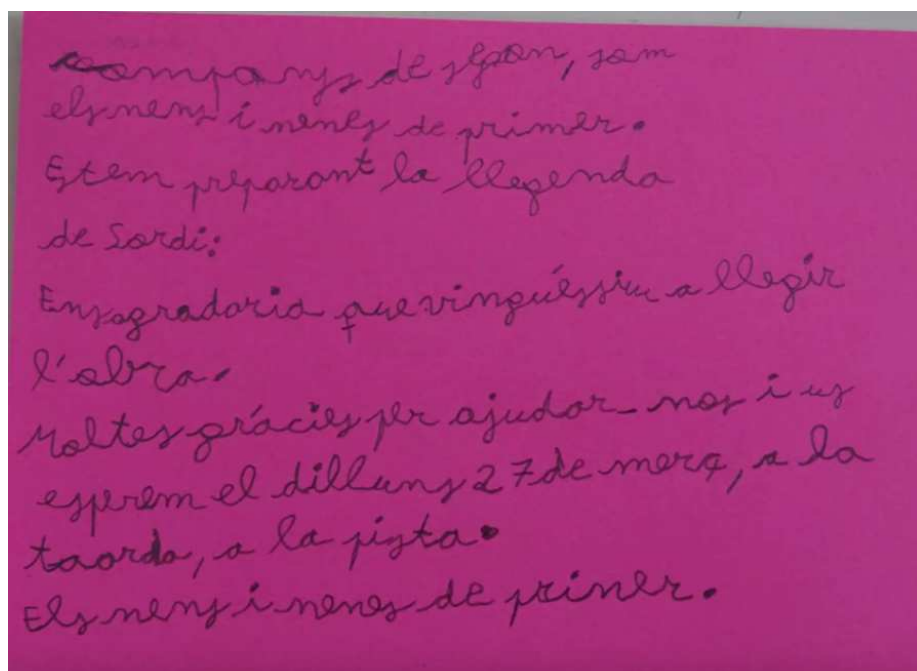 companys de segon, som
els nens i nenes de primer.
Estem preparant la llegenda
de Jordi:
Ens agradaria que vinguéssiu a llegir
l'obra.
Moltes gràcies per ajudar-nos i us
esperem el dilluns 27 de març, a la
taorda, a la pista.
Els nens i nenes de primer.